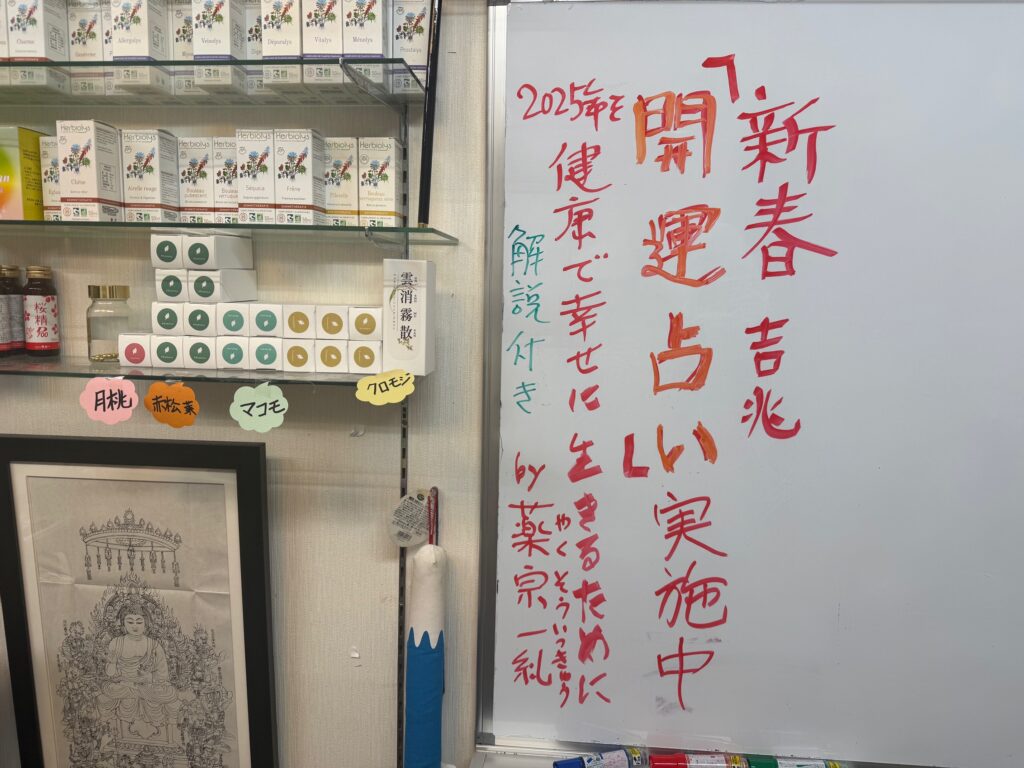 「新春 吉兆
開運占い」実施中
2025年を
健康で幸せに生きるために
解説付き
by 薬宗一糺
やくそういっきゅう
Charme
Allergalys
Veinalys
Dépuralys
Vitalys
Ménalys
Prostalys
Herbiolys
Herbiolys
Herbiolys
Herbiolys
Herbiolys
Chêne
Airelle rouge
Bouleau pubescent
Bouleau verruqueux
Séquoia
Frêne
雲消霧散
月桃
赤松葉
マコモ
クロモジ